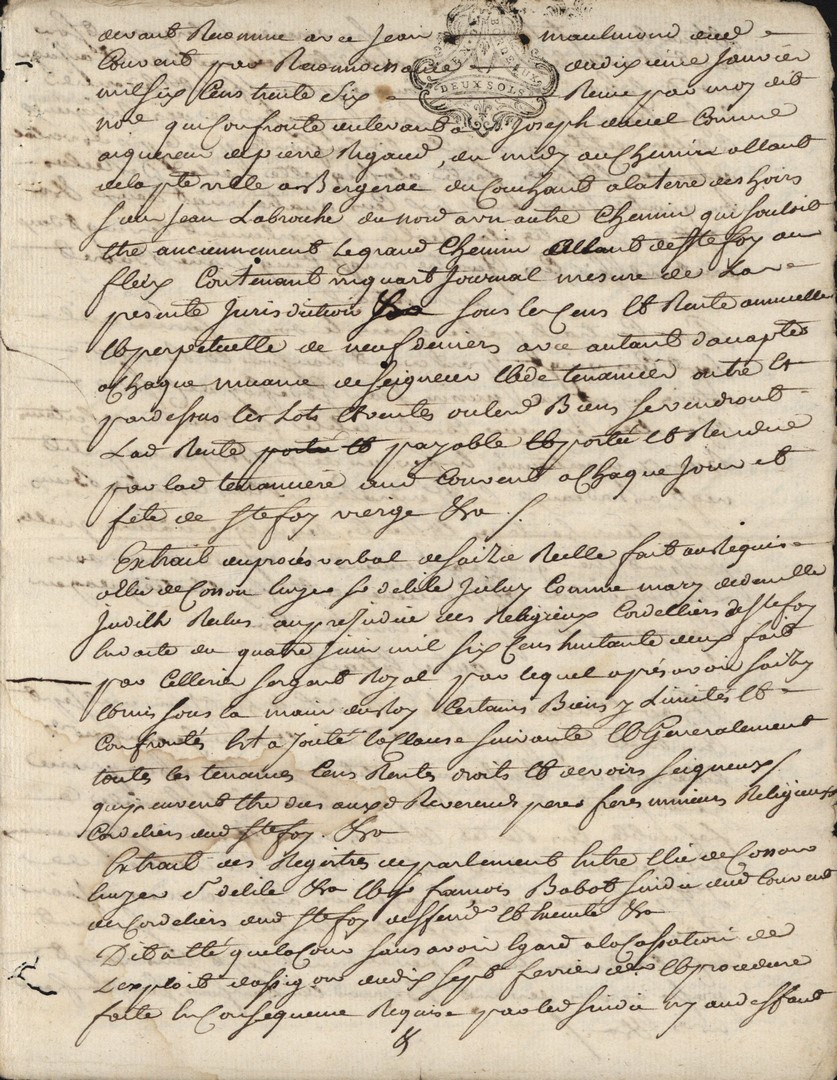 devant Reconnue avec Jean maulmond dud
Couvent par Reconnoissance du dixieme Janvier
mil six Cens trente Six Reçue par moy dit
no.e qui confronte du levant a Joseph daniel Comme
ayquereur de pierre Rigaud, du midy au Chemin allant
de la p.te ville a Bergerac du Couchant a la terre des hoirs
Sieur Jean Labrouche du nord a un autre Chemin qui souloit
Etre anciennement le grand Chemin allant de S.te foy au
fleix Contenant un quart Journal mesure de La
presente Jurisdiction sous le Cens et Rente annuelle
et perpetuelle de neuf deniers avec autant dacapte
a Chaque muance de Seigneur et de tenancier outre et
par dessus les Lots et ventes ou lesd Biens se vendroit
Lad Rente portée et payable et portée et Rendue
par lad tenanciere aud Couvent a Chaque Jour et
fete de S.te foy vierge &ca /.
Extrait du procés verbal de saizie Reelle fait au Requis
d'Elie de Cosson Ecuyer S.r de lille Comme mary de demlle
Judith au prejudice des Religieux Cordelliers de S.te foy
En date du quatre Juin mil six Cens huitante deux fait
par Cellerier sergent Royal par lequel aprés avoir saizy
et mis sous la main du Roy Certains Biens y Limités et
Confrontés Et a Jouté la Clause suivante et Generalement
toutes les tenances Cens Rentes droits et devoirs seigneux/.
qui peuvent Etre dus auxd Reverends peres freres mineurs Religieux
Cordeliers dud S.te foy. &ca
Extrait des Registres du parlement Entre Elie de Cosson
Ecuyer S.r de lile &ca et françois Babot Sindic dud Couvent
de Cordeliers dud S.te foy &ca
Dit a été que la Cour sans avoir Egard a la Cassation de
L'exploit dassig.on du dix sept fevrier et procedure
faite En Consequence Requise par led sindic
&
DEUX SOLS